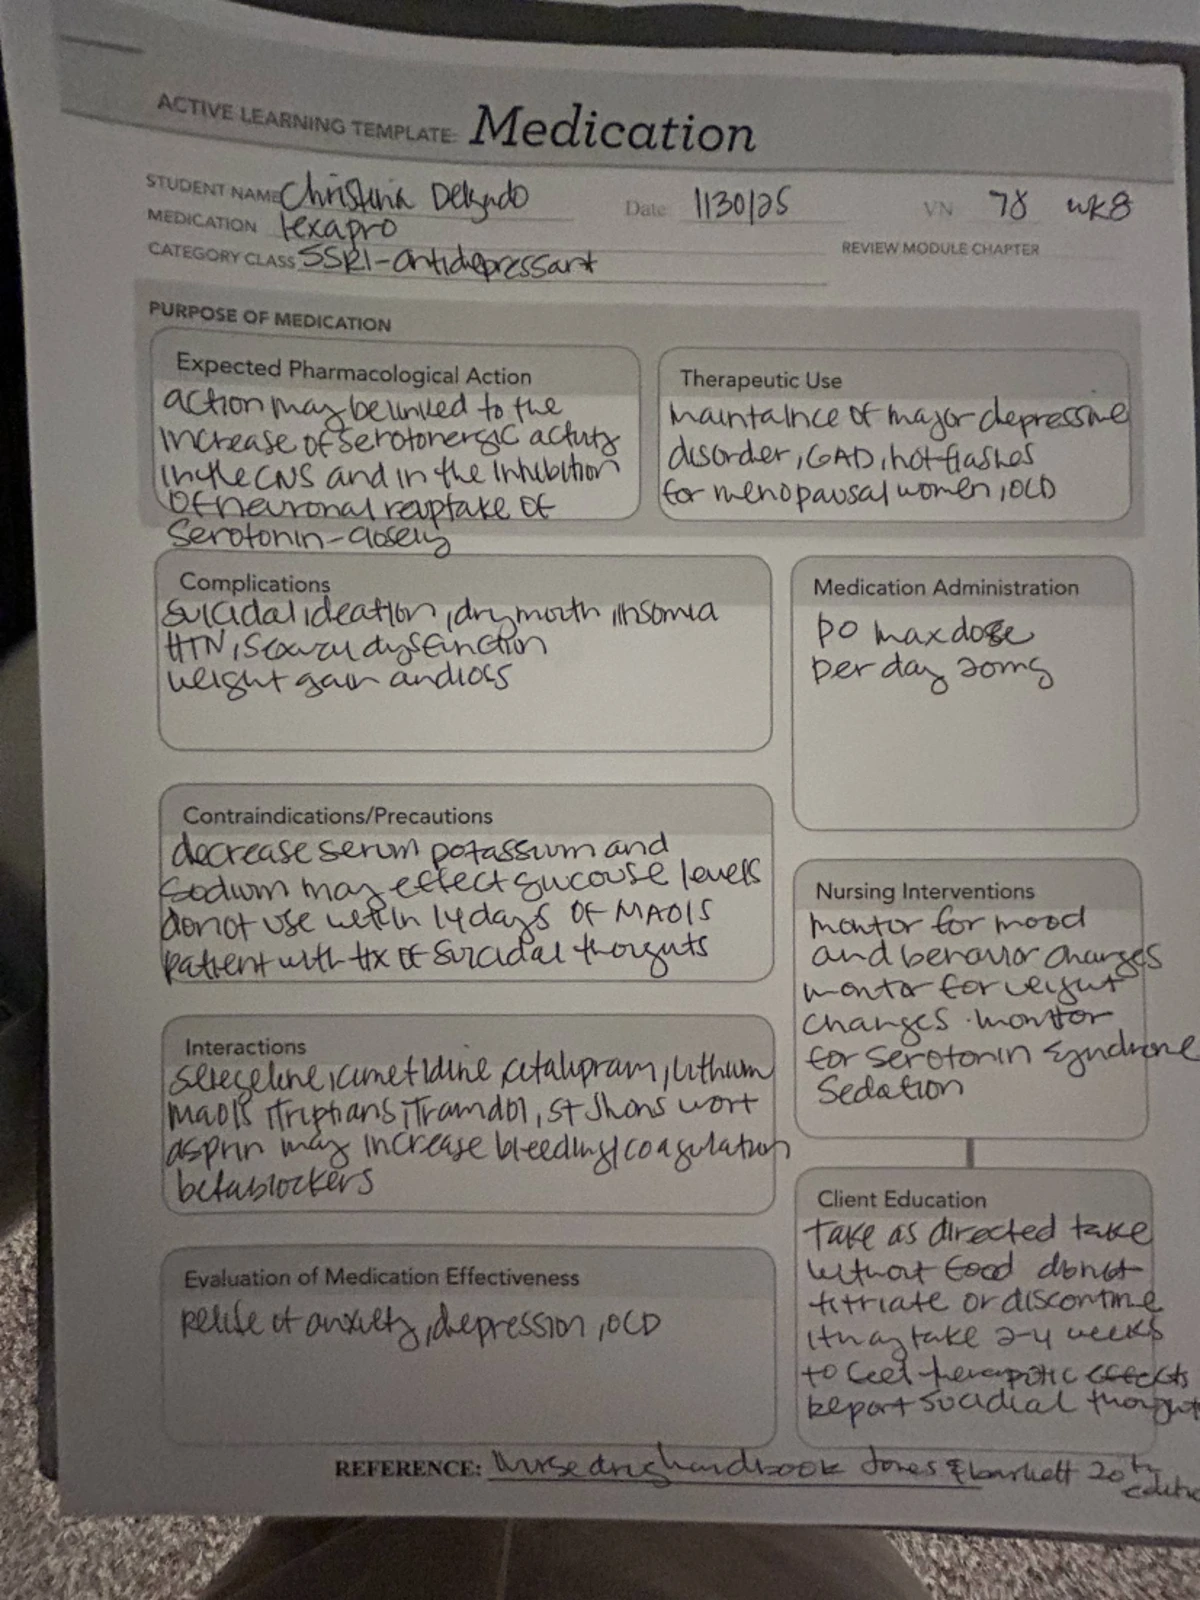 ACTIVE LEARNING TEMPLATE: Medication
STUDENT NAME Christina Delgado Date 1/30/25 VN 78 wk8
MEDICATION lexapro
CATEGORY CLASS SSRI-antidepressant REVIEW MODULE CHAPTER
PURPOSE OF MEDICATION
Expected Pharmacological Action
action may be linked to the
increase of serotonergic activity
in the CNS and in the inhibition
of neuronal reuptake of
Serotonin-closely
Therapeutic Use
maintaince of major depressive
disorder, GAD, hot flashes
for menopausal women, OCD
Complications
suicidal ideation, dry mouth, insomia
HTN, sexual dysfunction
weight gain and loss
Medication Administration
PO max dose
per day 20mg
Contraindications/Precautions
decrease serum potassium and
sodium may effect glucouse levels
do not use within 14 days of MAOIS
patient with Hx of suicidal thoughts
Nursing Interventions
monitor for mood
and behavior changes
monitor for weight
changes. monitor
for serotonin syndrome
sedation
Interactions
selegeline, cimetidine, citalopram, lithium
maois, Triptans, Tramdol, st Jhons wort
asprin may increase bleeding/coagulation
betablockers
Evaluation of Medication Effectiveness
relife of anxiety, depression, OCD
Client Education
Take as directed take
without food do not
titriate or discontine
it may take 2-4 weeks
to feel therapotic effects
Report sucidial thought
REFERENCE: Nurse drug handbook Jones & bartlett 20th
edition